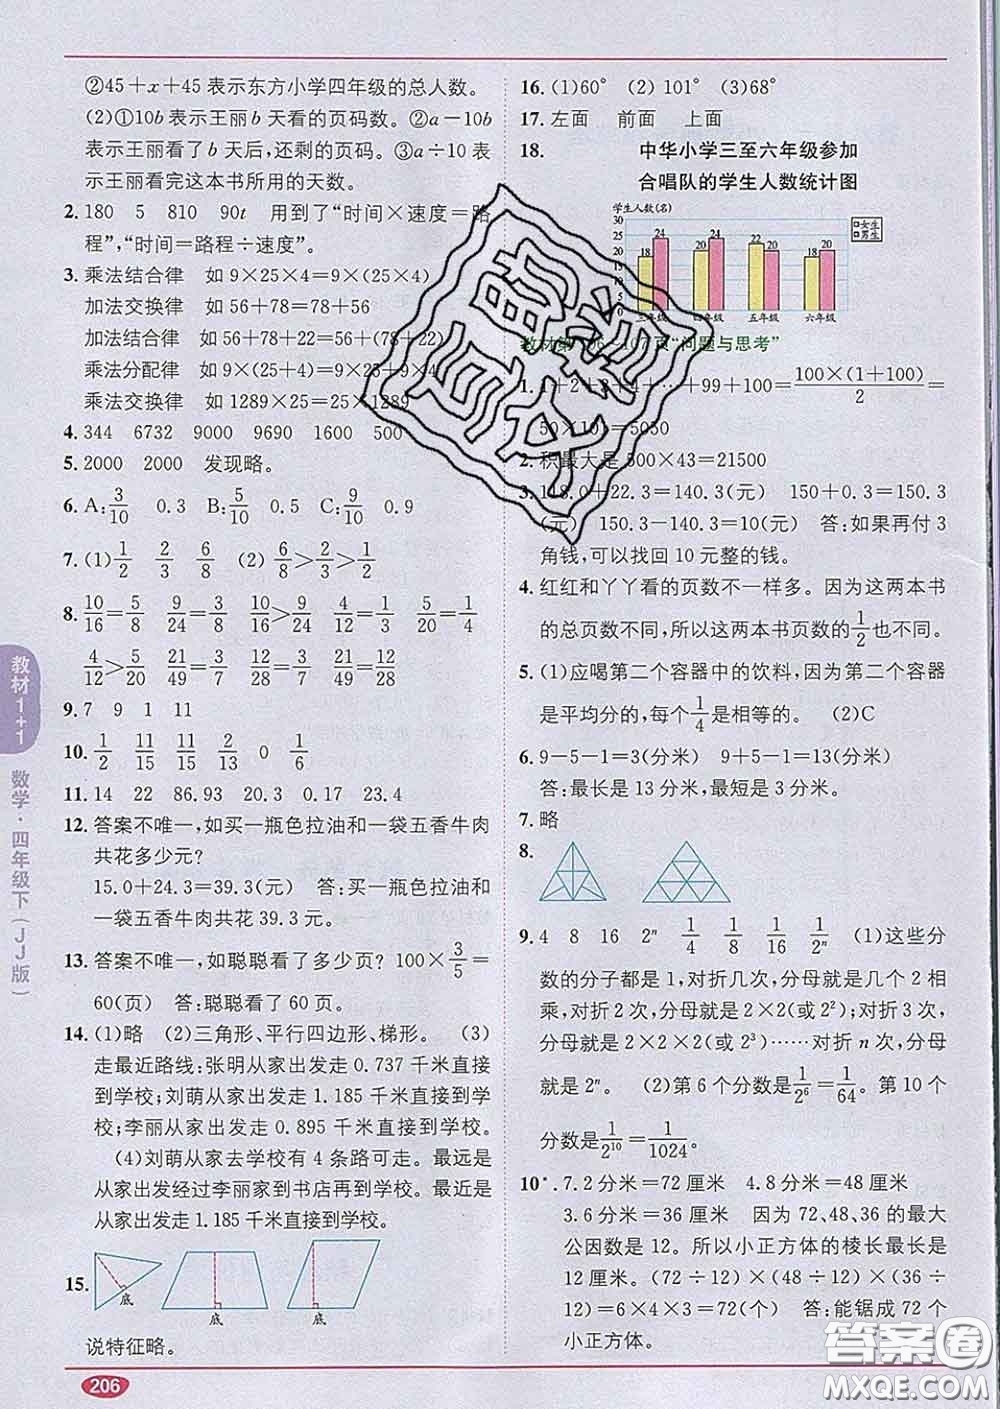 ②45+x+45 表示东方小学四年级的总人数。
(2)①10b 表示王丽 b 天看的页码数。②a-10b
表示王丽看了 b 天后,还剩的页码。③a÷10 表
示王丽看完这本书所用的天数。
2. 180 5 810 90t 用到了“时间×速度=路
程”,“时间=路程÷速度”。
3. 乘法结合律 如 9×25×4=9×(25×4)
加法交换律 如 56+78=78+56
加法结合律 如 56+78+22=56+(78+22)
乘法分配律 如 9×25+9×4
乘法交换律 如 1289×25=25×1289
4. 344 6732 9000 9690 1600 500
5. 2000 2000 发现略。
6. A:3/10 0.3 B:5/10 0.5 C:9/10 0.9
7. (1)1/2 2/3 6/8 (2)6/8>2/3>1/2
8. 10/16=5/8 9/24=3/8 10/16>9/24 4/12=1/3 5/20=1/4
4/12>5/20 12/28=3/7 24/56=3/7 12/28=24/56
9. 7 9 1 11
10. 1/2 11/15 11/15 2/13 0 1/6
11. 14 22 86.93 20.3 0.17 23.4
12. 答案不唯一,如买一瓶色拉油和一袋五香牛肉
共花多少元?
15.0+24.3=39.3(元) 答:买一瓶色拉油和
一袋五香牛肉共花 39.3 元。
13. 答案不唯一,如聪聪看了多少页? 100×3/5=
60(页) 答:聪聪看了 60 页。
14. (1)略 (2)三角形、平行四边形、梯形。 (3)
走最近路线:张明从家出发走 0.737 千米直接
到学校;刘萌从家出发走 1.185 千米直接到学
校;李丽从家出发走 0.895 千米直接到学校。
(4)刘萌从家去学校有 4 条路可走。最远是
从家出发经过李丽家到书店再到学校。最近是
从家出发走 1.185 千米直接到学校。
15.
底 底 底
说特征略。
206
教材1+1 数学·四年级下(JJ版)
16. (1)60° (2) 101° (3)68°
17. 左面 前面 上面
18. 中华小学三至六年级参加
合唱队的学生人数统计图
学生人数(名)
女生
男生
30
25
20
15
10
5
0
18 24 20 24 22 20 18 20
三年级 四年级 五年级 六年级
“问题与思考”
1. 1+2+3+4+…+99+100=100×(1+100)/2=
50×101=5050
2. 积最大是 500×43=21500
3. 118.0+22.3=140.3(元) 150+0.3=150.3
(元) 150.3-140.3=10(元) 答:如果再付 3
角钱,可以找回 10 元整的钱。
4. 红红和丫丫看的页数不一样多。因为这两本书
的总页数不同,所以这两本书页数的1/2也不同。
5. (1)应喝第二个容器中的饮料,因为第二个容器
是平均分的,每个1/4是相等的。 (2)C
6. 9-5-1=3(分米) 9+5-1=13(分米)
答:最长是 13 分米,最短是 3 分米。
7. 略
8.
9. 4 8 16 2ⁿ 1/4 1/8 1/16 1/2ⁿ (1)这些分
数的分子都是 1,对折几次,分母就是几个 2 相
乘,对折 2 次,分母就是 2×2(或 2²);对折 3 次,
分母就是 2×2×2(或 2³)……对折 n 次,分母
就是 2ⁿ。 (2)第 6 个分数是1/2⁶=1/64。第 10 个
分数是1/2¹⁰=1/1024。
10*. 7.2 分米=72 厘米 4.8 分米=48 厘米
3.6 分米=36 厘米 因为 72、48、36 的最大
公因数是 12。所以小正方体的棱长最长是
12 厘米。(72÷12)×(48÷12)×(36÷
12)=6×4×3=72(个) 答:能锯成 72 个
小正方体。
答案圈
MXQE.COM